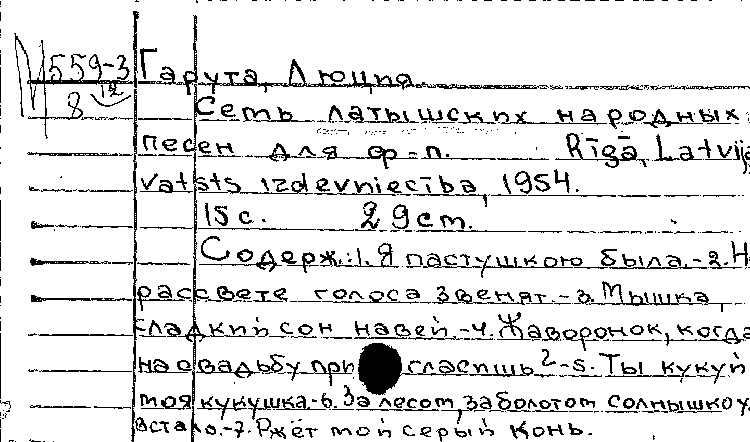 М 559-3
8 12
Гарута, Люция.
Семь латышских народных
песен для ф-п. Rīgā, Latvij
vatsts izdevniecība, 1954.
15 с. 29 cm.
Содерж.: 1. Я пастушкою была.-2. Н
рассвете голоса звенят.-3. Мышка,
сладкий сон навей.-4. Жаворонок, когда
на свадьбу при гласишь?-5. Ты кукуй
моя кукушка.-6. За лесом, за болотом солнышко у
встало.-7. Ржёт мой серый конь.